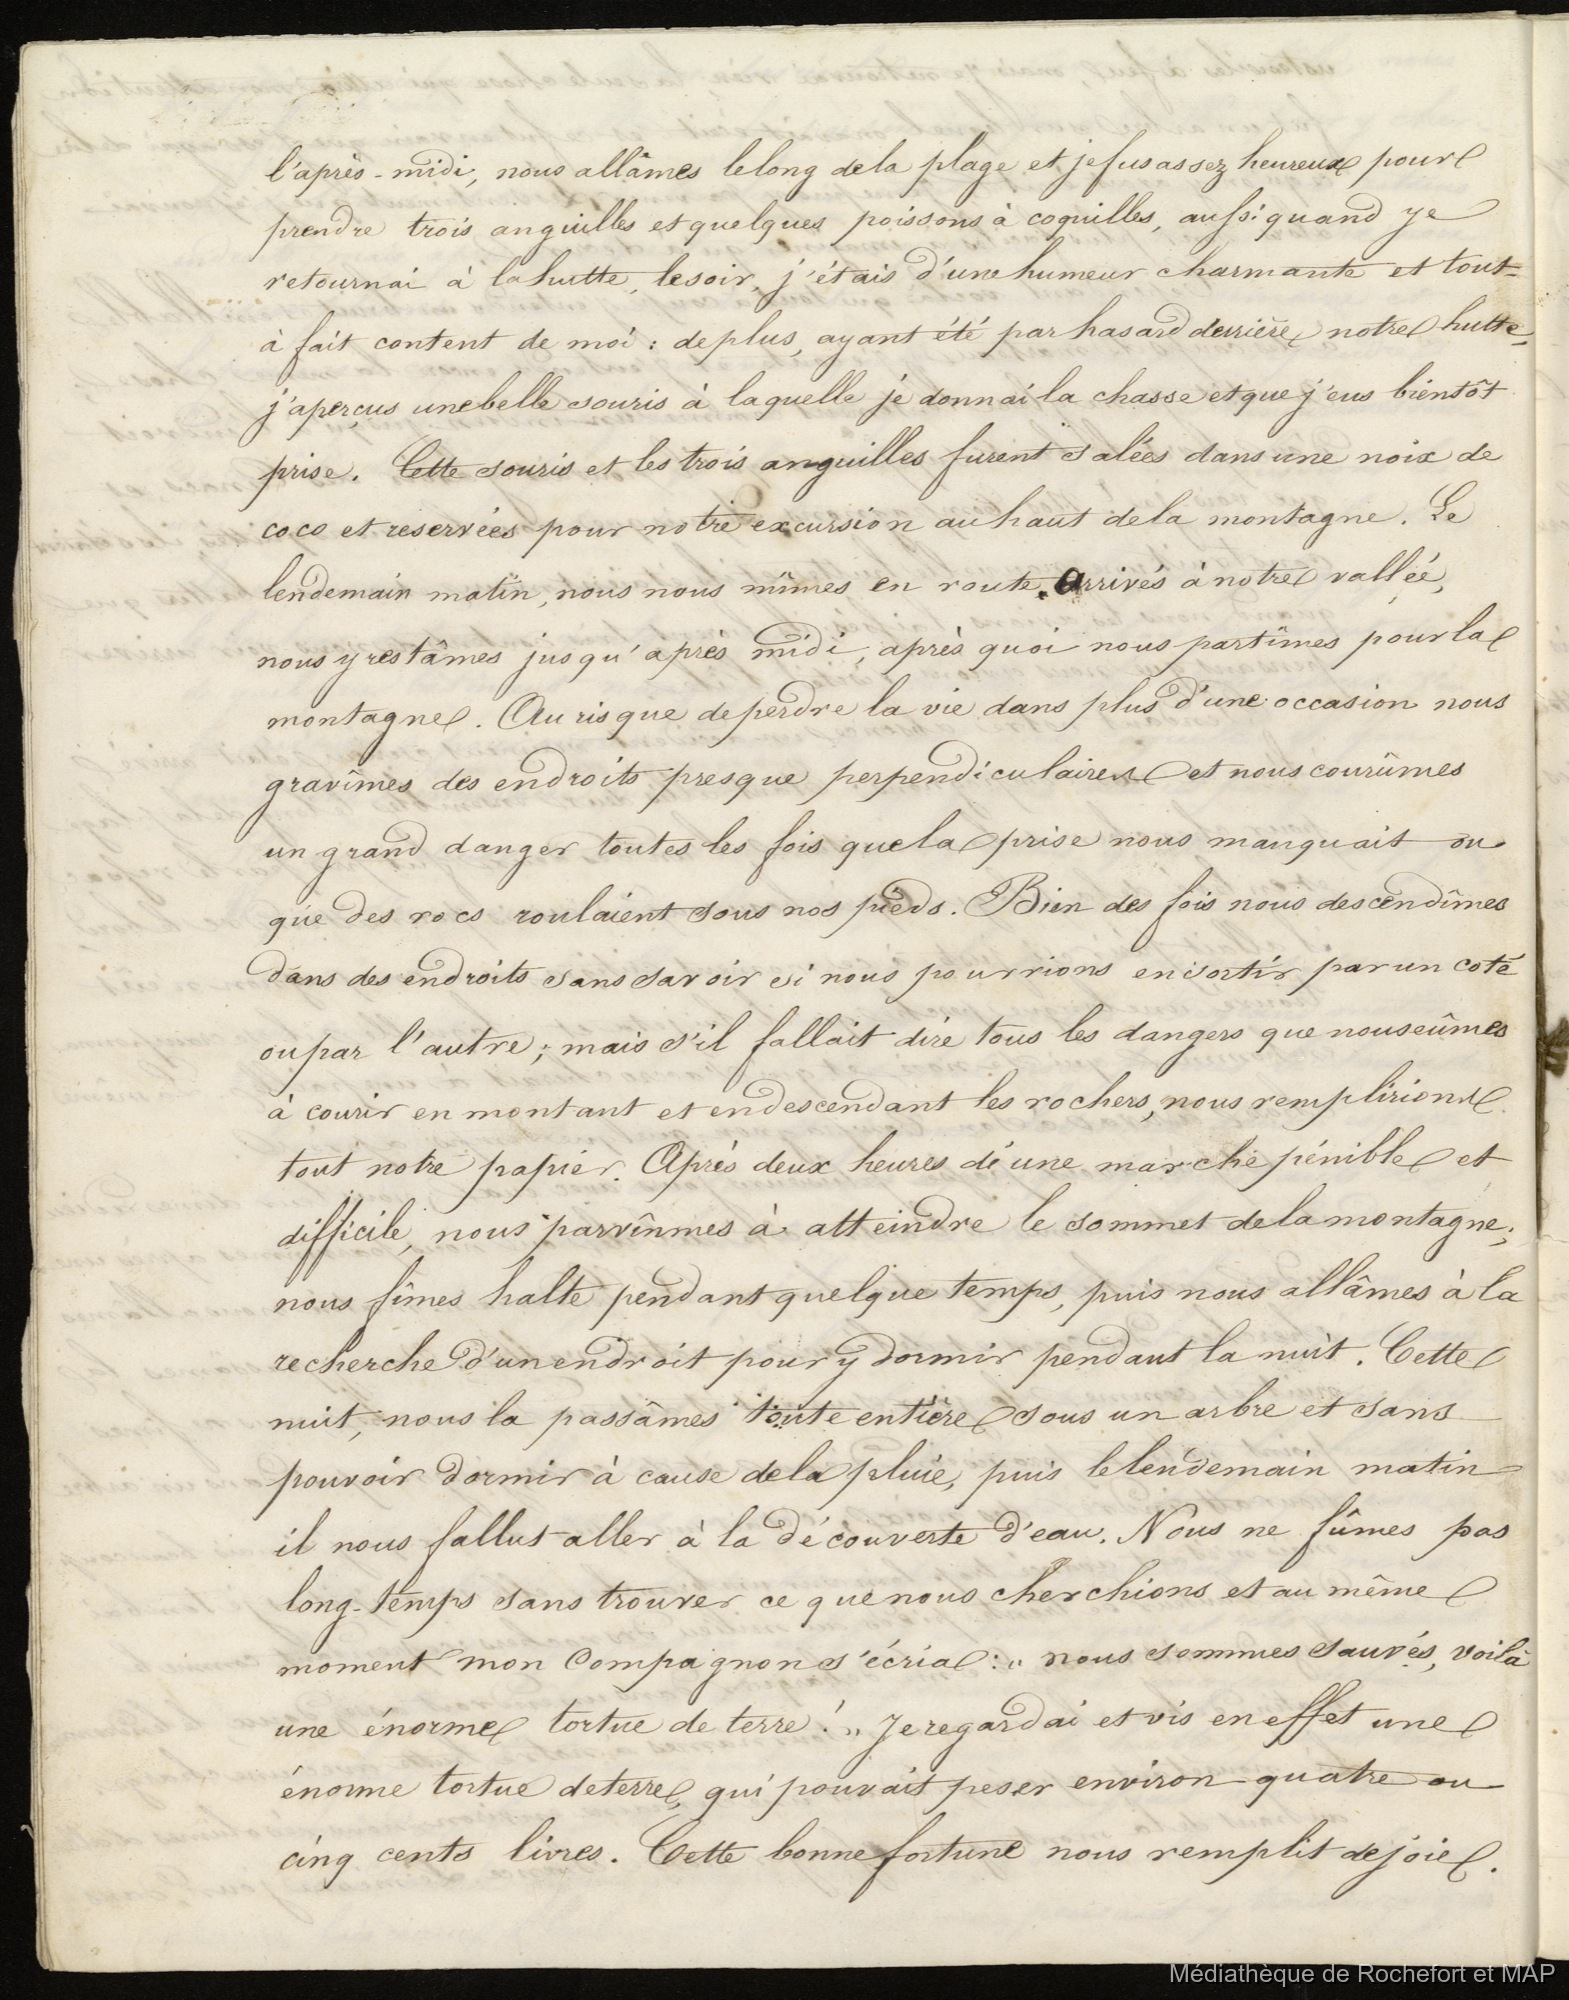 l'après-midi, nous allâmes le long de la plage et je fus assez heureux pour
prendre trois anguilles et quelques poissons à coquilles, aussi quand je
retournai à la hutte, le soir, j'étais d'une humeur charmante et tout-
à fait content de moi : de plus, ayant été par hasard derrière notre hutte,
j'aperçus une belle souris à laquelle je donnai la chasse et que j'eus bientôt
prise. Cette souris et les trois anguilles furent salées dans une noix de
coco et reservées pour notre excursion au haut de la montagne. Le
lendemain matin, nous nous mîmes en route. Arrivés à notre vallée,
nous y restâmes jusqu'après midi, après quoi nous partîmes pour la
montagne. Au risque de perdre la vie dans plus d'une occasion nous
gravîmes des endroits presque perpendiculaires et nous courûmes
un grand danger toutes les fois que la prise nous manquait ou
que des rocs roulaient sous nos pieds. Bien des fois nous descendîmes
dans des endroits sans savoir si nous pourrions en sortir par un coté
ou par l'autre ; mais s'il fallait dire tous les dangers que nous eûmes
à courir en montant et en descendant les rochers, nous remplirions
tout notre papier. Après deux heures de une marche pénible et
difficile, nous parvînmes à atteindre le sommet de la montagne ;
nous fîmes halte pendant quelque temps, puis nous allâmes à la
recherche d'un endroit pour y dormir pendant la nuit. Cette
nuit, nous la passâmes toute entière sous un arbre et sans
pouvoir dormir à cause de la pluie, puis le lendemain matin
il nous fallut aller à la découverte d'eau. Nous ne fûmes pas
long-temps sans trouver ce que nous cherchions et au même
moment mon compagnon s'écria : " nous sommes sauvés, voilà
une énorme tortue de terre ! " Je regardai et vis en effet une
énorme tortue de terre, qui pouvait peser environ quatre ou
cinq cents livres. Cette bonne fortune nous remplit de joie.
Médiathèque de Rochefort et MAP